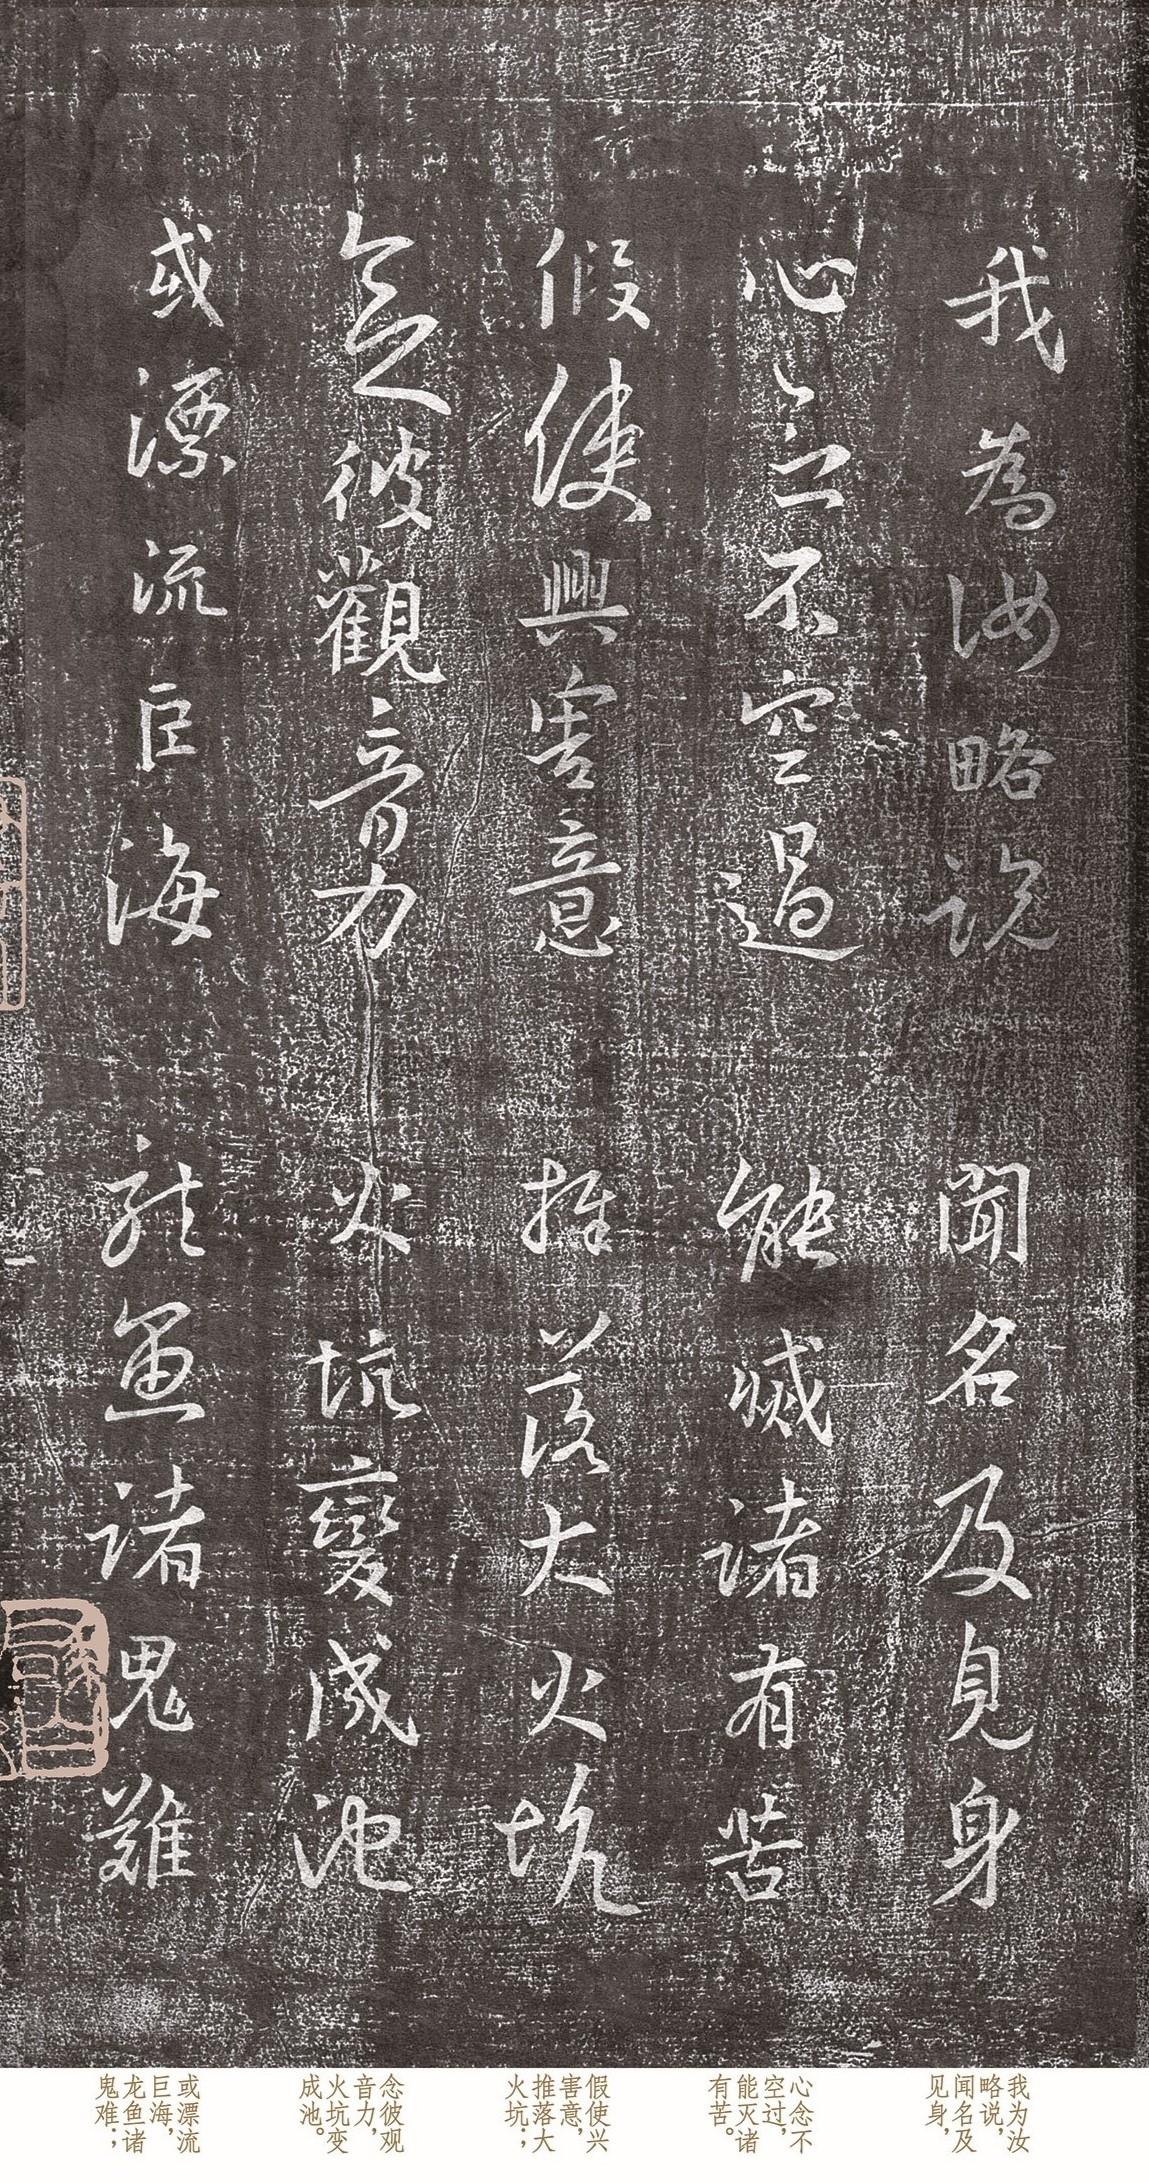 我為汝略說　聞名及見身
心念不空過　能滅諸有苦
假使興害意　推落大火坑
念彼觀音力　火坑變成池
或漂流巨海　龍魚諸鬼難
我为汝
略说，
闻名及
见身，
心念不
空过，
能灭诸
有苦。
假使兴
害意，
推落大
火坑；
念彼观
音力，
火坑变
成池。
或漂流
巨海，
龙鱼诸
鬼难；